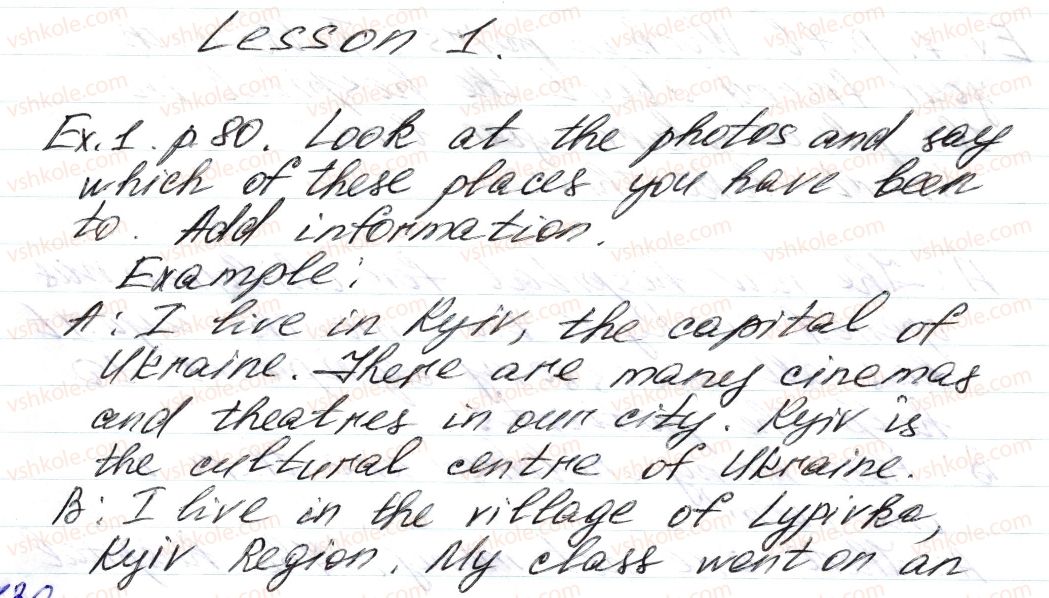 Lesson 1.
Ex. 1. p. 80. Look at the photos and say
which of these places you have been
to. Add information.
Example:
A: I live in Kyiv, the capital of
Ukraine. There are many cinemas
and theatres in our city. Kyiv is
the cultural centre of Ukraine.
B: I live in the village of Lypivka,
Kyiv Region. My class went on an